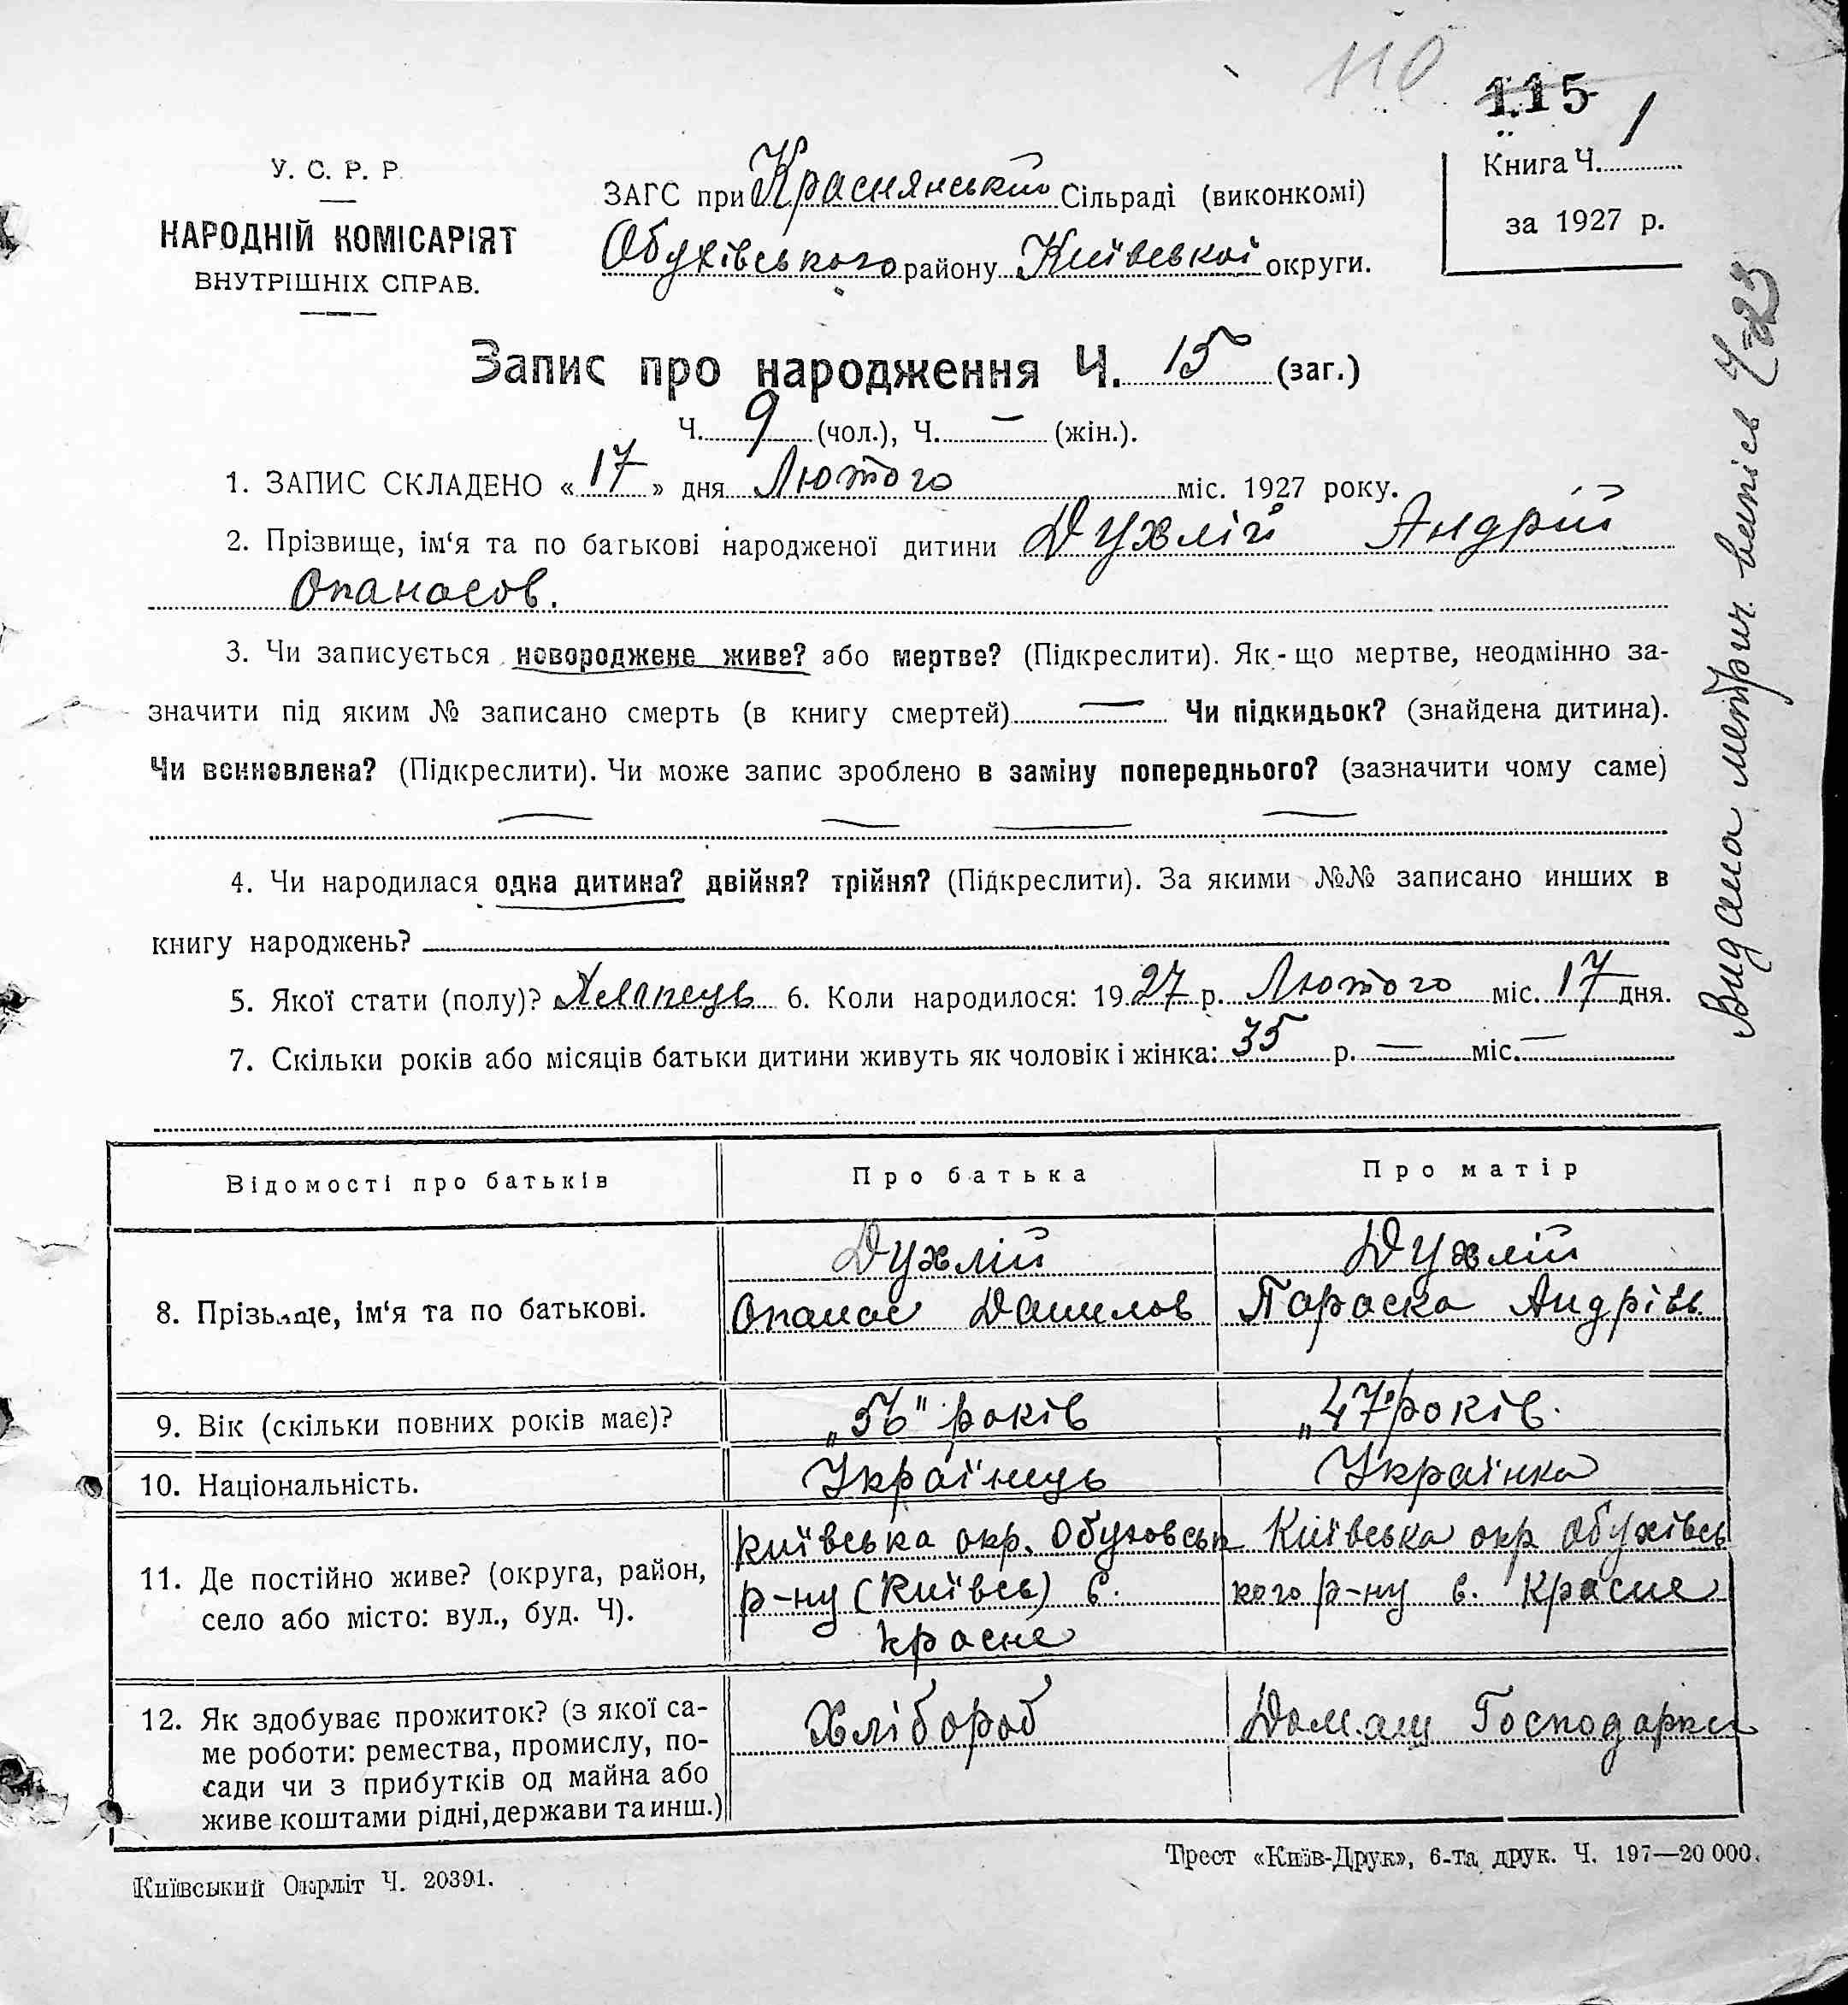 110
115
У. С. Р. Р.
НАРОДНІЙ КОМІСАРІЯТ
ВНУТРІШНІХ СПРАВ.
ЗАГС при Краснянській Сільраді (виконкомі)
Обухівського району Київської округи.
Книга Ч. 1
за 1927 р.
Запис про народження Ч. 15 (заг.)
Ч. 9 (чол.), Ч. — (жін.).
1. ЗАПИС СКЛАДЕНО « 17 » дня Лютого міс. 1927 року.
2. Прізвище, ім‘я та по батькові народженої дитини Духлій Андрій
Опанасов.
3. Чи записується новороджене живе? або мертве? (Підкреслити). Як-що мертве, неодмінно за-
значити під яким № записано смерть (в книгу смертей) — Чи підкидьок? (знайдена дитина).
Чи всиновлена? (Підкреслити). Чи може запис зроблено в заміну попереднього? (зазначити чому саме)
— — — —
4. Чи народилася одна дитина? двійня? трійня? (Підкреслити). За якими №№ записано инших в
книгу народжень?
5. Якої стати (полу)? Хлапець 6. Коли народилося: 1927 р. Лютого міс. 17 дня.
7. Скільки років або місяців батьки дитини живуть як чоловік і жінка: 35 р. — міс. —
Видана метрич. випись Ч-23
Відомості про батьків Про батька Про матір
8. Прізвище, ім‘я та по батькові.
Духлій
Опанас Данилов
Духлій
Параска Андрівв.
9. Вік (скільки повних років має)? „56" років „47" років.
10. Національність. Українець Українка
11. Де постійно живе? (округа, район,
село або місто: вул., буд. Ч).
Київська окр. Обуховськ
р-ну (Київсь) с.
Красне
Київська окр Обухівсь
кого р-ну с. Красне
12. Як здобуває прожиток? (з якої са-
ме роботи: ремества, промислу, по-
сади чи з прибутків од майна або
живе коштами рідні, держави та инш.)
Хлібороб
Домаш Господарка
Київський Окрліт Ч. 20391.
Трест «Київ-Друк», 6-та друк. Ч. 197—20 000.